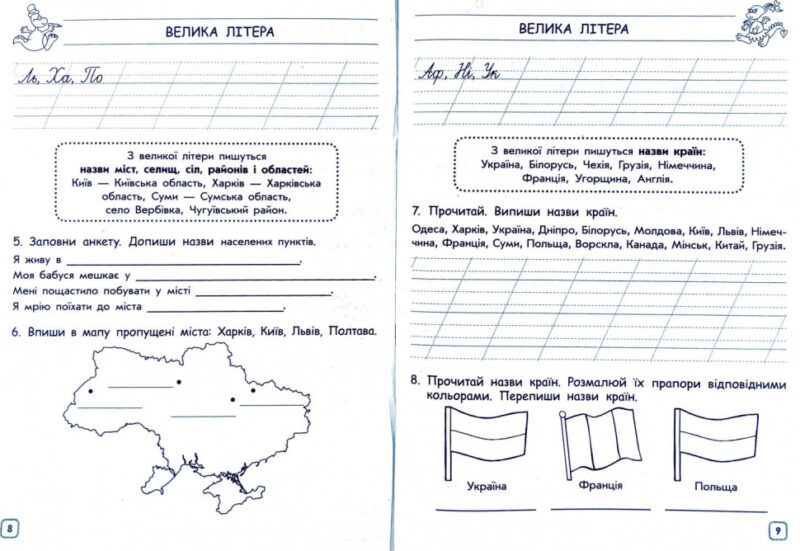 ВЕЛИКА ЛІТЕРА
Ль, Ха, По
З великої літери пишуться
назви міст, селищ, сіл, районів і областей:
Київ — Київська область, Харків — Харківська
область, Суми — Сумська область,
село Вербівка, Чугуївський район.
5. Заповни анкету. Допиши назви населених пунктів.
Я живу в
Моя бабуся мешкає у
Мені пощастило побувати у місті
Я мрію поїхати до міста
6. Впиши в мапу пропущені міста: Харків, Київ, Львів, Полтава.
8
ВЕЛИКА ЛІТЕРА
Аф, Ні, Ук
З великої літери пишуться назви країн:
Україна, Білорусь, Чехія, Грузія, Німеччина,
Франція, Угорщина, Англія.
7. Прочитай. Випиши назви країн.
Одеса, Харків, Україна, Дніпро, Білорусь, Молдова, Київ, Львів, Німеч-
чина, Франція, Суми, Польща, Ворскла, Канада, Мінськ, Китай, Грузія.
8. Прочитай назви країн. Розмалюй їх прапори відповідними
кольорами. Перепиши назви країн.
Україна Франція Польща
9